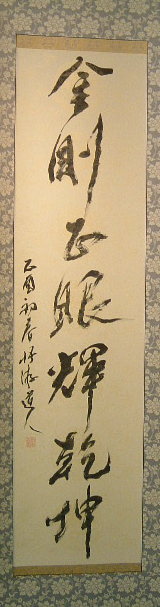 金剛正眼輝乾坤
乙酉初春
道人